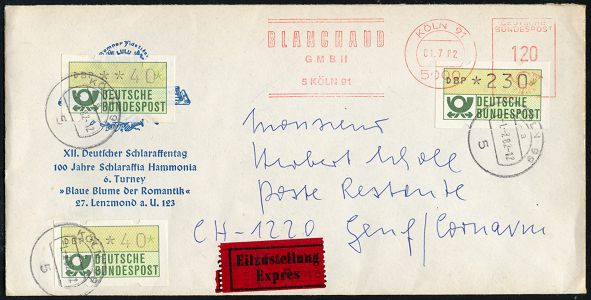 Semper Fidelitas
BLANCHAUD
GMBH
5 KÖLN 91
KÖLN 91
01.7.82
5000
DEUTSCHE
BUNDESPOST
120
DBP **40*
DEUTSCHE
BUNDESPOST
5
DBP *230*
DEUTSCHE
BUNDESPOST
5
XII. Deutscher Schlaraffentag
100 Jahre Schlaraffia Hammonia
6. Turney
»Blaue Blume der Romantik«
27. Lenzmond a. U. 123
Monsieur
Herbert Scholl
Poste Restante
CH-1220 Genf/Cornavin
DBP **40*
DEUTSCHE
BUNDESPOST
5
Eilzustellung
Exprès